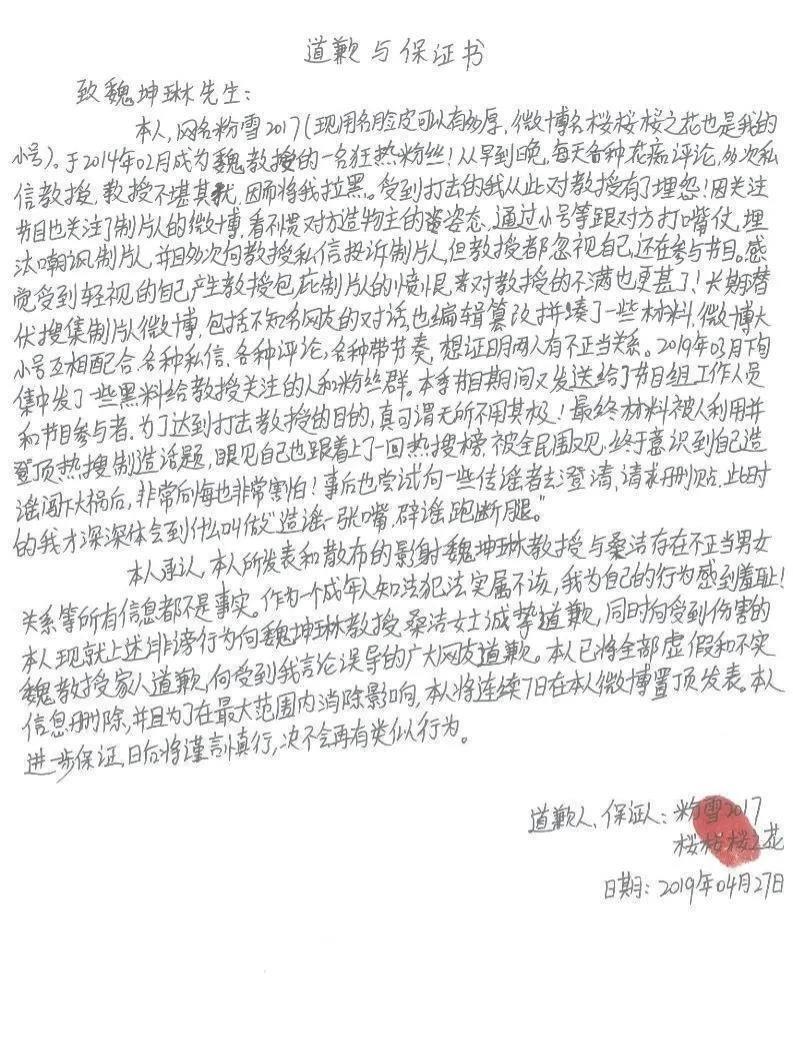 道歉与保证书
致魏坤琳先生：
本人，网名粉雪2017（现用名脸皮可以有多厚，微博名桜桜桜之花也是我的
小号）。于2014年02月成为魏教授的一名狂热粉丝！从早到晚，每天各种花痴评论，多次私
信教授，教授不堪其扰，因而将我拉黑。受到打击的我从此对教授有了埋怨！因关注
节目也关注了制片人的微博，看不惯对方造物主的姿态，通过小号等跟对方打嘴仗，埋
汰嘲讽制片人，并且多次向教授私信投诉制片人，但教授都忽视自己，还在参与节目。感
觉受到轻视的自己产生教授包庇制片人的愤恨，来对教授的不满也更甚了！长期潜
伏搜集制片人微博，包括不知名网友的对话，也编辑篡改拼凑了一些材料，微博大
小号互相配合，各种私信，各种评论，各种带节奏，想证明两人有不正当关系。2019年03月下旬
集中发了一些黑料给教授关注的人和粉丝群。本季节目期间又发送给了节目组工作人员
和节目参与者。为了达到打击教授的目的，真可谓无所不用其极！最终材料被人利用并
登顶热搜制造话题，眼见自己也跟着上了一回热搜榜，被全民围观，终于意识到自己造
谣闯下大祸后，非常后悔也非常害怕！事后也尝试向一些传谣者去澄清，请求删贴，此时
的我才深深体会到什么叫做“造谣一张嘴，辟谣跑断腿。”
本人承认，本人所发表和散布的影射魏坤琳教授与桑洁存在不正当男女
关系等所有信息都不是事实。作为一个成年人知法犯法实属不该，我为自己的行为感到羞耻！
本人现就上述诽谤行为向魏坤琳教授、桑洁女士诚挚道歉，同时向受到伤害的
魏教授家人道歉，向受到我言论误导的广大网友道歉。本人已将全部虚假和不实
信息删除，并且为了在最大范围内消除影响，本人将连续7日在本人微博置顶发表。本人
进一步保证，日后将谨言慎行，决不会再有类似行为。
道歉人、保证人：粉雪2017
桜桜桜之花
日期：2019年04月27日